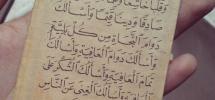 وَقَلْبًا خَاشِعًا وَ
صَادِقًا وَدِينًا قَيِّمًا وَأَسْأَلُكَ
دَوَامَ النَّجَاةِ مِنْ كُلِّ بَلِيَّةٍ
وَأَسْأَلُكَ دَوَامَ الْعَافِيَةِ وَأَسْأَلُكَ
تَمَامَ الْعَافِيَةِ وَأَسْأَلُكَ الشُّكْرَ عَلَى
الْعَافِيَةِ وَأَسْأَلُكَ الْغِنَى عَنِ النَّاسِ